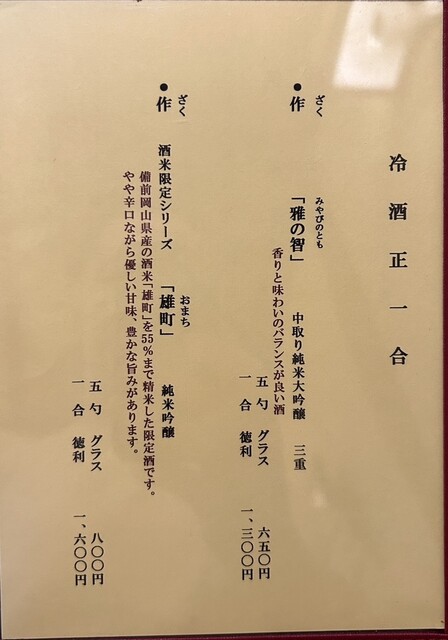 冷酒正一合
●作 「雅の智」 中取り純米大吟醸 三重
ざく みやびのとも
香りと味わいのバランスが良い酒
五勺 グラス 六五〇円
一合 徳利 一、三〇〇円
●作 酒米限定シリーズ 「雄町」 純米吟醸
ざく おまち
備前岡山県産の酒米「雄町」を55%まで精米した限定酒です。
やや辛口ながら優しい甘味、豊かな旨みがあります。
五勺 グラス 八〇〇円
一合 徳利 一、六〇〇円